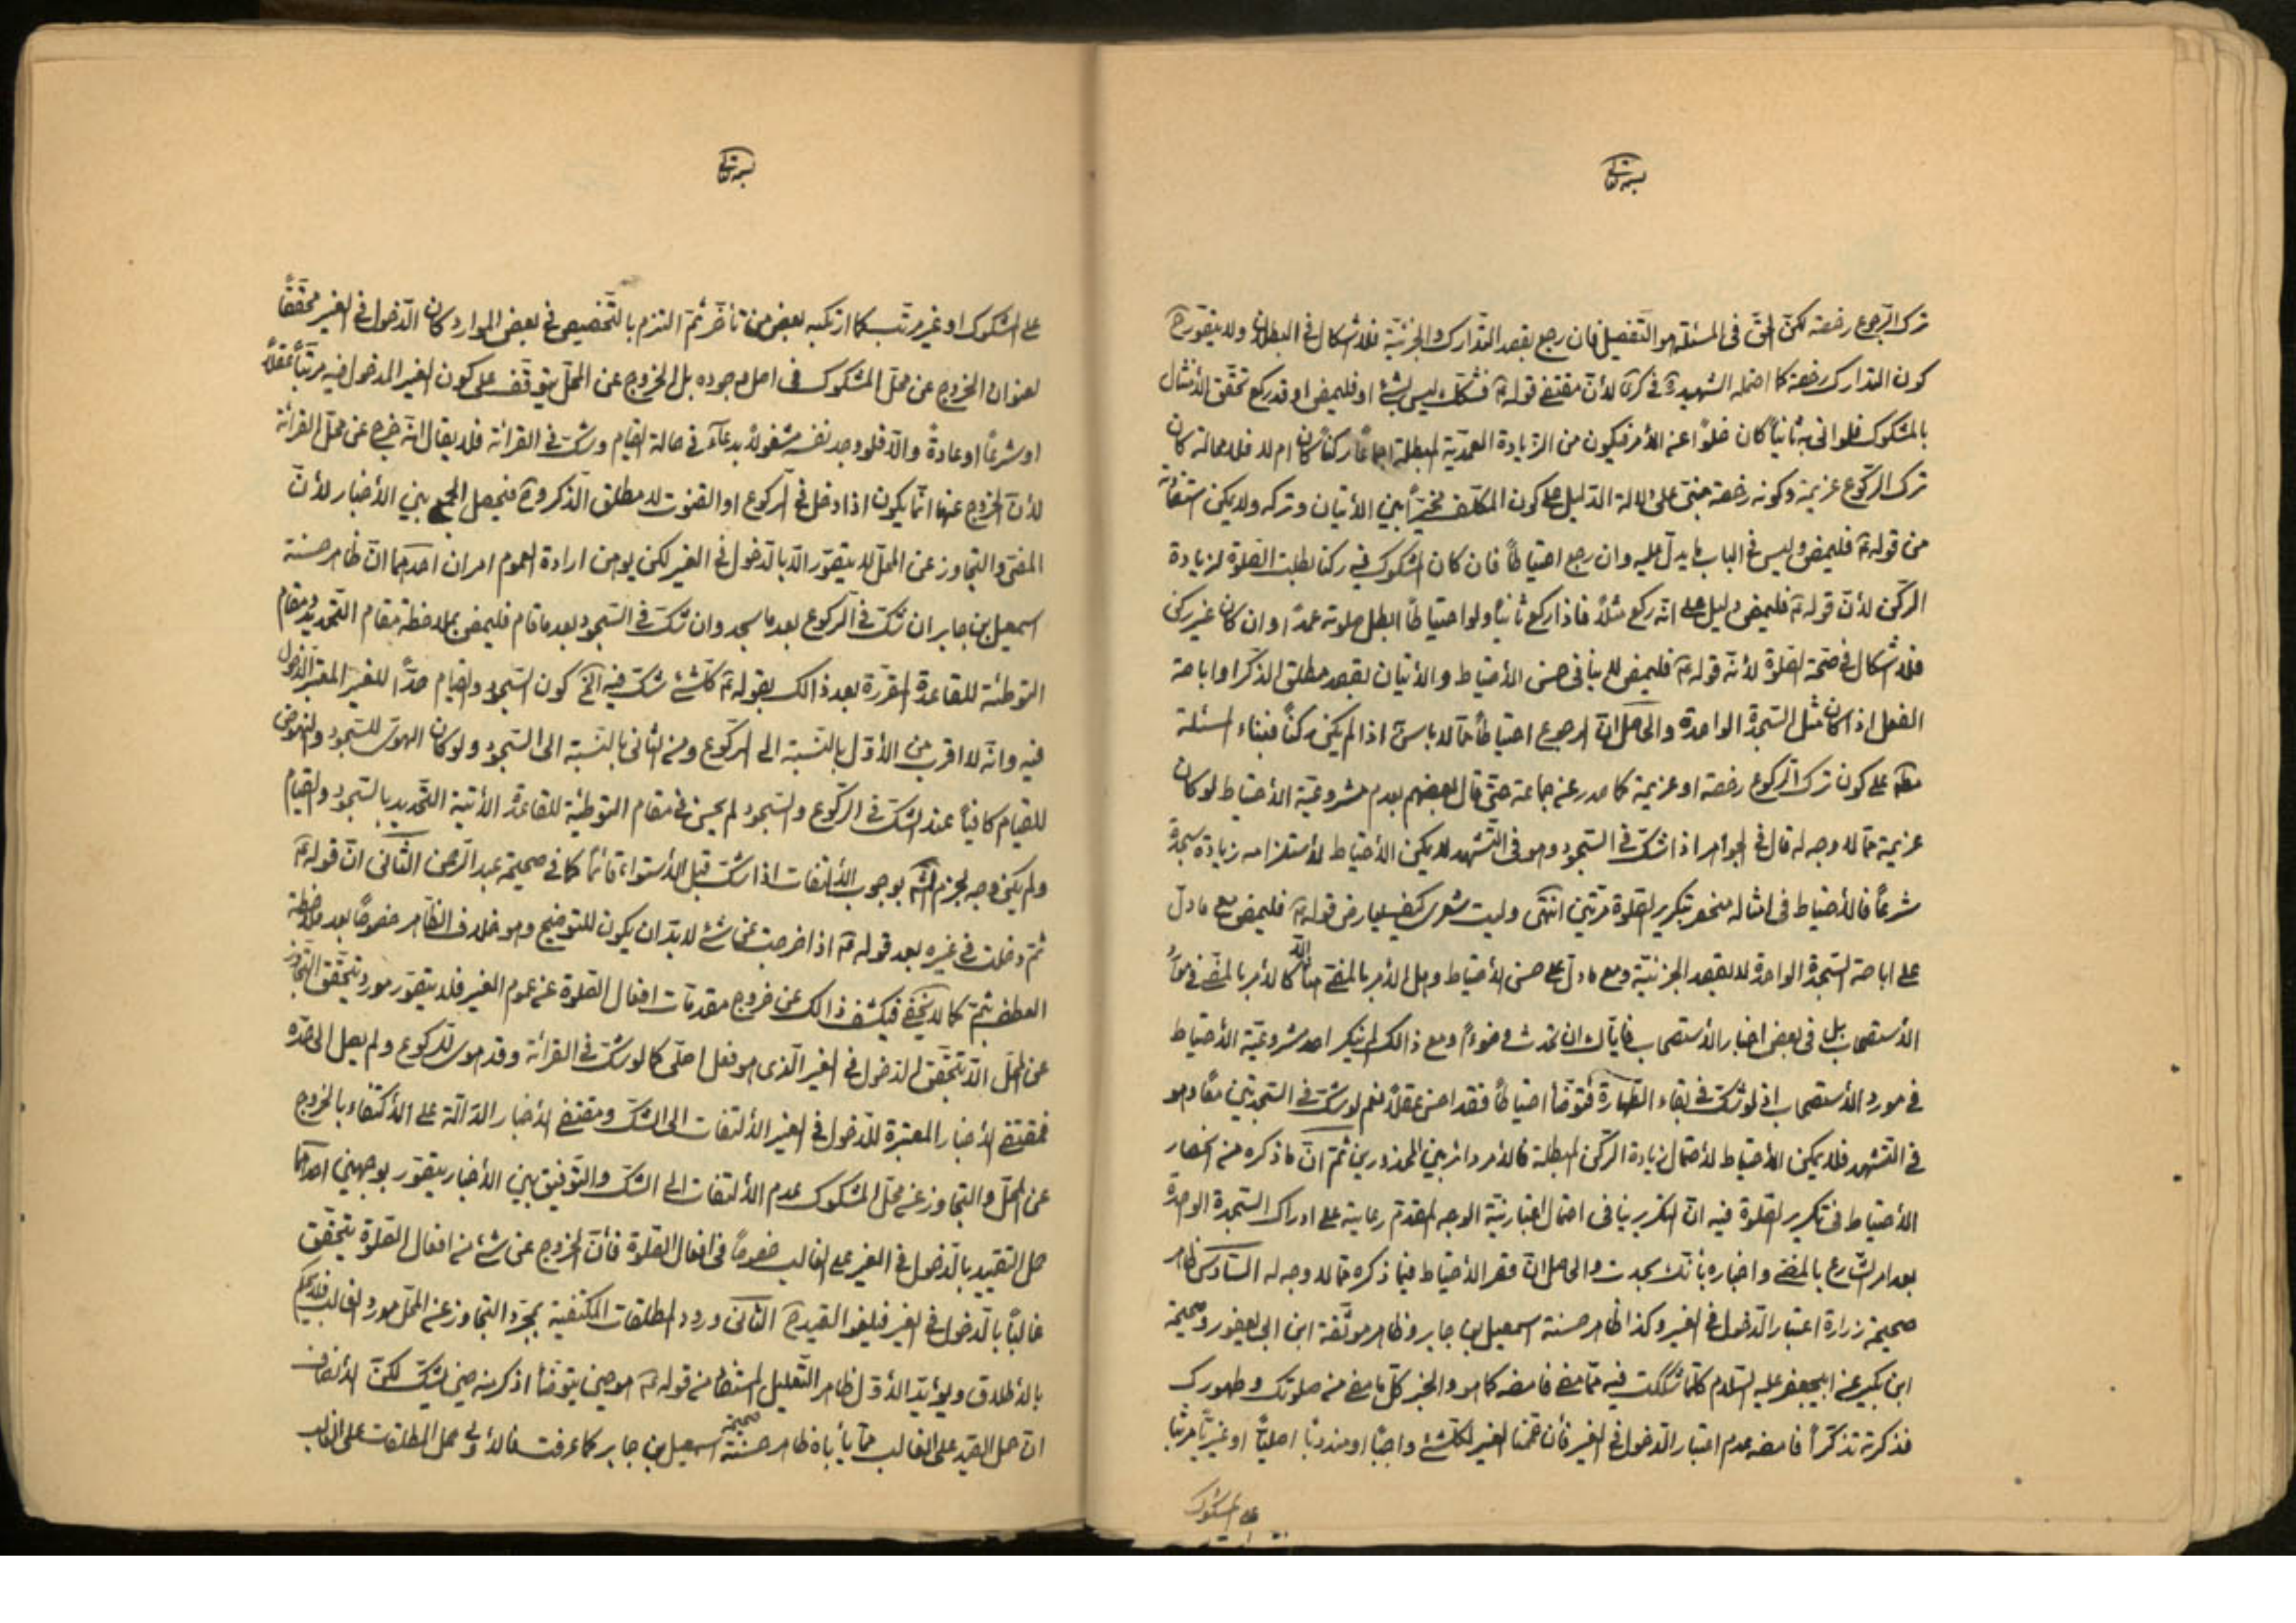 بسمه تعالى
ترك الرجوع رخصة لكن الحق فى المسئلة هو التفصيل فان رجع بقصد التدارك والجزئية فلا اشكال فى البطلان ولا يتصور ح
كون التدارك رخصة كما احتمله الشهيد ره فى كرى لأن مقتضى قوله ع فشكك ليس بشئ او فليمض او قد ركع تحقق الأمتثال
بالمشكوك فلو اتى به ثانياً كان خلواً عن الأمر فيكون من الزيادة العمدية المبطلة اجماعاً ركناً كان ام لا فلا محالة كان
ترك الركوع عزيمة وكونه رخصة مبنى على دلالة الدليل على كون المكلف مخيراً بين الأتيان وتركه ولا يمكن استفادته
من قوله ع فليمض وليس فى الباب ما يدل عليه وان رجع احتياطاً فان كان المشكوك فيه ركنا بطلت الصلوة لزيادة
الركن لأن قوله ع فليمض دليل على انه ركع مثلاً فاذا ركع ثانياً ولو احتياطاً ابطل صلوته عمداً وان كان غير ركن
فلا اشكال فى صحة الصلوة لأن قوله ع فليمض لا ينافى حسن الأحتياط والأتيان بقصد مطلق الذكر او اباحة
الفعل اذا كان مثل السجدة الواحدة والحاصل ان الرجوع احتياطاً مما لا باس به اذا لم يكن ركناً فبناء المسئلة
مطلقا على كون ترك الركوع رخصة او عزيمة كما صدر عن جماعة حتى قال بعضهم بعدم مشروعية الأحتياط لو كان
عزيمة مما لا وجه له قال فى الجواهر اذا شك فى السجود وهو فى التشهد لا يمكن الأحتياط لأستلزامه زيادة سجدة
شرعاً فالأحتياط فى امثاله منحصر بتكرير الصلوة مرتين انتهى وليت شعرى كيف يعارض قوله ع فليمض مع ما دل
على اباحة السجدة الواحدة لا بقصد الجزئية ومع ما دل على حسن الأحتياط وهل الأمر بالمضى هنا الا كالأمر بالمضى فى موارد
الأستصحاب بل فى بعض اخبار الأستصحاب فاياك ان تحدث وضوءً ومع ذالك لم ينكر احد مشروعية الأحتياط
فى مورد الأستصحاب اذ لو شك فى بقاء الطهارة فتوضأ احتياطاً فقد احسن عقلاً نعم لو شك فى السجدتين معاً وهو
فى التشهد فلا يمكن الأحتياط لأحتمال زيادة الركن المبطلة فالأمر دائر بين المحذورين ثم ان ما ذكره من انحصار
الأحتياط فى تكرير الصلوة فيه ان التكرير ينافى احتمال اعتبار نية الوجه المقدم رعايته على ادراك السجدة الواحدة
بعد امر الشارع بالمضى واخباره بأنك سجدت والحاصل ان حصر الأحتياط فيما ذكره مما لا وجه له السادس ظاهر
صحيحة زرارة اعتبار الدخول فى الغير وكذا ظاهر حسنة اسمعيل بن جابر وظاهر موثقة ابن ابى يعفور وصحيحة
ابن بكير عن ابيجعفر عليه السلام كلما شككت فيه مما مضى فامضه كما هو والخبر كل ما مضى من صلوتك وطهورك
فذكرته تذكراً فامضه عدم اعتبار الدخول فى الغير فأن عممنا الغير لكل شئ واجباً او مندوباً اصلياً او غيرياً مرتباً
على المشكوك
بسمه تعالى
على المشكوك او غير مرتب كما ارتكبه بعض من تأخر ثم التزم بالتخصيص فى بعض الموارد كان الدخول فى الغير محققاً
لعنوان الخروج عن محل المشكوك فى اصل وجوده بل الخروج عن المحل يتوقف على كون الغير المدخول فيه مرتباً عقلاً
او شرعاً او عادةً والا فلو وجد نفسه مشغولاً بدعاء فى حالة القيام وشك فى القرائة فلا يقال انه خرج عن محل القرائة
لأن الخروج عنها انما يكون اذا دخل فى الركوع او القنوت لا مطلق الذكر وح فيحصل الجمع بين الأخبار لأن
المضى والتجاوز عن المحل لا يتصور الا بالدخول فى الغير لكن يوهن ارادة العموم امران احدهما ان ظاهر حسنة
اسمعيل بن جابر ان شك فى الركوع بعد ما سجد وان شك فى السجود بعد ما قام فليمض بملاحظة مقام التحديد ومقام
التوطئة للقاعدة المقررة بعد ذالك بقوله ع كل شئ شك فيه الخ كون السجود والقيام حداً للغير المعتبر الدخول
فيه وانه لا اقرب من الأول بالنسبة الى الركوع ومن الثانى بالنسبة الى السجود ولو كان الهوى للسجود والنهوض
للقيام كافياً عند الشك فى الركوع والسجود لم يحسن فى مقام التوطئة للقاعدة الأتية التحديد بالسجود والقيام
ولم يكن وجه لجزم المشهور بوجوب الألتفات اذا شك قبل الأستواء قائماً كما فى صحيحة عبد الرحمن الثانى ان قوله ع
ثم دخلت فى غيره بعد قوله ع اذا خرجت عن شئ لا بد ان يكون للتوضيح وهو خلاف الظاهر خصوصاً بعد ملاحظة
العطف بثم كما لا يخفى فيكشف ذالك عن خروج مقدمات افعال الصلوة عن عموم الغير فلا يتصور مورد يتحقق التجاوز
عن المحل الا يتحقق الدخول فى الغير الذى هو فعل اصلى كما لو شك فى القرائة وقد هوى للركوع ولم يصل الى حده
فمقتضى الأخبار المعتبرة للدخول فى الغير الألتفات الى الشك ومقتضى الأخبار الدالة على الأكتفاء بالخروج
عن المحل والتجاوز عن محل المشكوك عدم الألتفات الى الشك والتوفيق بين الأخبار يتصور بوجهين احدهما
حمل التقييد بالدخول فى الغير على الغالب خصوصاً فى افعال الصلوة فأن الخروج عن شئ من افعال الصلوة يتحقق
غالباً بالدخول فى الغير فيلغو القيد ح الثانى ورود المطلقات المكتفية بمجرد التجاوز عن المحل مورد الغالب فلا يحكم
بالأطلاق ويؤيد الأول ظاهر التعليل المستفاد من قوله ع هو حين يتوضأ اذكر منه حين يشك لكن الأنصاف
ان حمل القيد على الغالب مما يأباه ظاهر صحيحة حسنة اسمعيل بن جابر كما عرفت فالأولى حمل المطلقات على الغالب